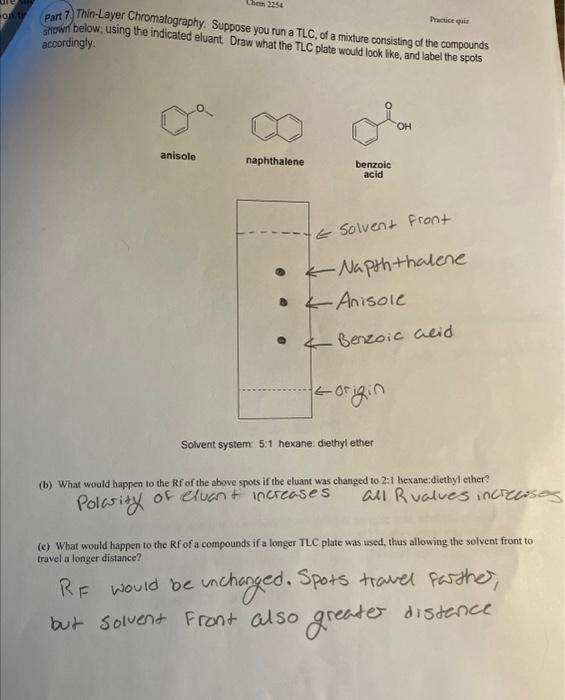 Chem 2254
Practice quiz
Part 7. Thin-Layer Chromatography. Suppose you run a TLC, of a mixture consisting of the compounds
shown below, using the indicated eluant. Draw what the TLC plate would look like, and label the spots
accordingly.
O
O
OH
anisole
naphthalene
benzoic
acid
← Solvent Front
← Napththalene
← Anisole
← Benzoic acid
← origin
Solvent system: 5:1 hexane: diethyl ether
(b) What would happen to the Rf of the above spots if the eluant was changed to 2:1 hexane:diethyl ether?
Polarity of eluant increases all R values increases
(c) What would happen to the Rf of a compounds if a longer TLC plate was used, thus allowing the solvent front to
travel a longer distance?
RF would be unchanged. Spots travel farther,
but solvent Front also greater distence